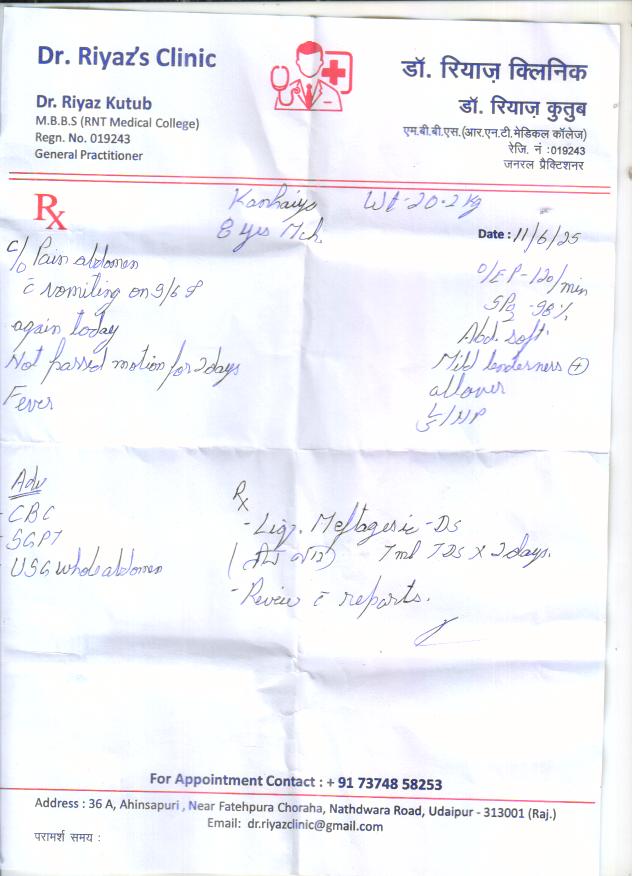 Dr. Riyaz's Clinic
Dr. Riyaz Kutub
M.B.B.S (RNT Medical College)
Regn. No. 019243
General Practitioner
डॉ. रियाज़ क्लिनिक
डॉ. रियाज़ कुतुब
एम.बी.बी.एस.(आर.एन.टी.मेडिकल कॉलेज)
रेजि. नं :019243
जनरल प्रैक्टिशनर
Rx
Kanhaiya Wt-20.2kg
8 yrs Mch
Date : 11/6/25
c/o Pain abdomen
c̄ vomiting on 9/6
again today
Not passed motion for 2days
Fever
O/E P-120/min
SPO2 -98%
Abd. soft.
Mild tenderness ⊕
allover
L/S/NP
Adv
- CBC
- SGPT
- USG whole abdomen
Rx
- Liq. Meftagesic-DS
7ml TDS x 2days.
- Review c̄ reports.
For Appointment Contact : + 91 73748 58253
Address : 36 A, Ahinsapuri , Near Fatehpura Choraha, Nathdwara Road, Udaipur - 313001 (Raj.)
Email: dr.riyazclinic@gmail.com
परामर्श समय :